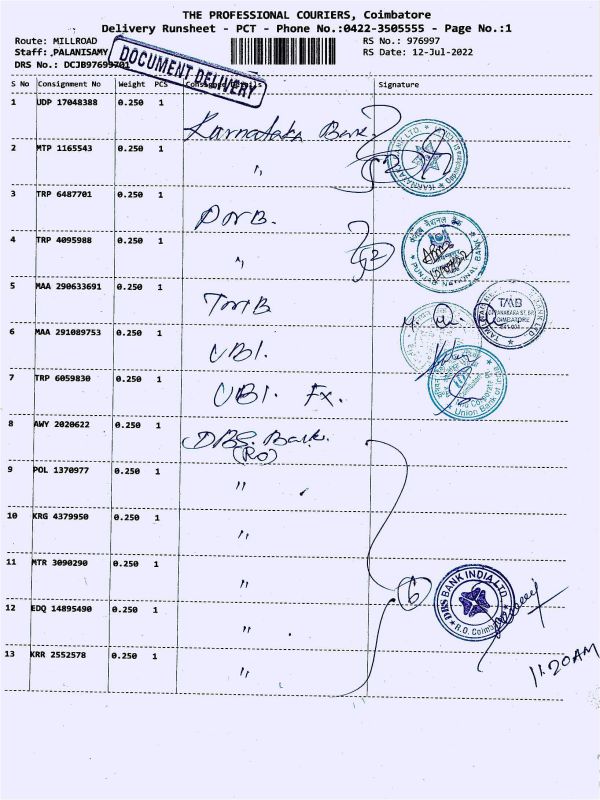 THE PROFESSIONAL COURIERS, Coimbatore
Delivery Runsheet - PCT - Phone No.:0422-3505555 - Page No.:1
Route: MILLROAD RS No.: 976997
Staff: PALANISAMY RS Date: 12-Jul-2022
DRS No.: DCJB97699701
DOCUMENT DELIVERY
S No Consignment No Weight PCS Consignee Details Signature
1 UDP 17048388 0.250 1 Karnataka Bank
2 MTP 1165543 0.250 1 "
3 TRP 6487701 0.250 1 PNB.
4 TRP 4095988 0.250 1 "
5 MAA 290633691 0.250 1 TMB
6 MAA 291089753 0.250 1 UBI.
7 TRP 6059830 0.250 1 UBI. Fx.
8 AWY 2020622 0.250 1 DBS. Bank.
(RO)
9 POL 1370977 0.250 1 "
10 KRG 4379950 0.250 1 "
11 MTR 3090290 0.250 1 "
12 EDQ 14895490 0.250 1 "
13 KRR 2552578 0.250 1 "
2
2
6
PUNJAB NATIONAL BANK
TMB
COIMBATORE
Union Bank of
DBS BANK INDIA LTD
R.O. Coimbatore
11:20AM